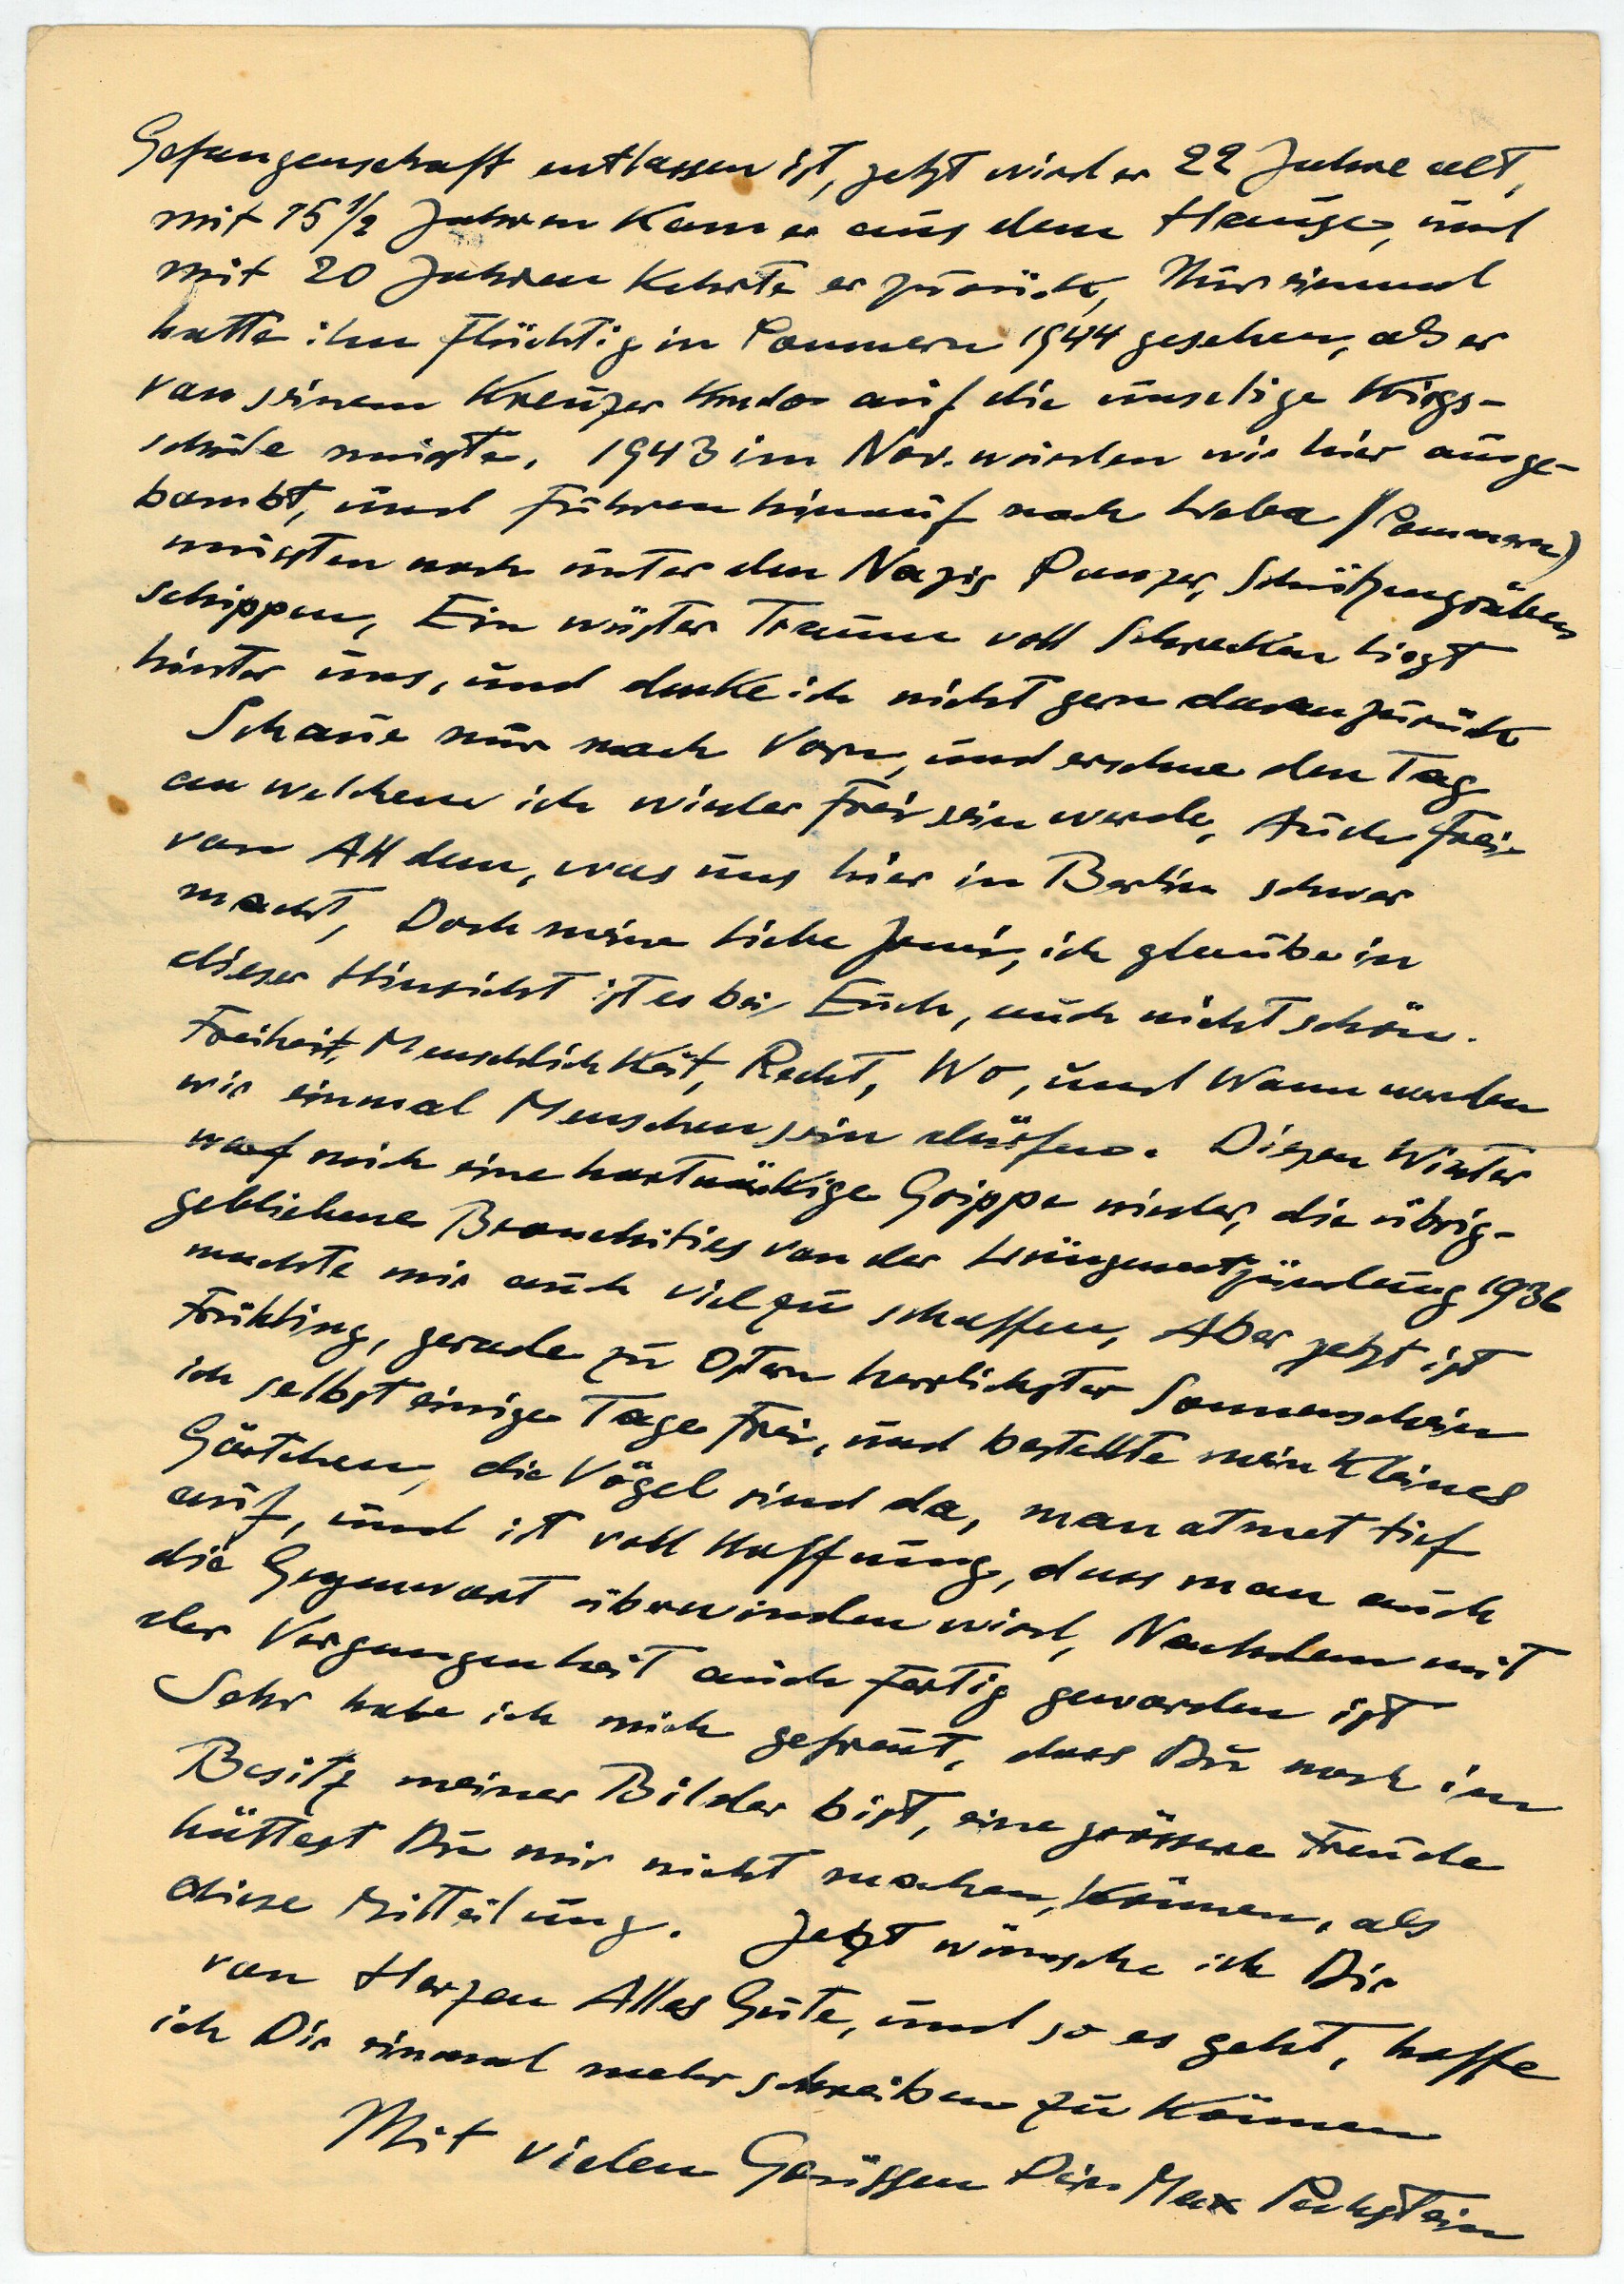 Gefangenschaft entlassen ist, jetzt wird er 22 Jahre alt,
mit 15 1/2 Jahren kam er aus dem Hause, und
mit 20 Jahren kehrte er zurück, Nur einmal
hatte ihn flüchtig in Pommern 1944 gesehen, als er
von seinem Kreuzer Kmdo auf die unselige Kriegs-
schule musste. 1943 im Nov. wurden wir hier ausge-
bombt, und fuhren hinauf nach Leba /(Pommern)
mussten noch unter den Nazis Panzer, Schützengräben
schippen, Ein wüster Traum voll Schrecken liegt
hinter uns, und denke ich nicht gern daran zurück
Schaue nur nach Vorn, und ersehne den Tag
an welchem ich wieder Frei sein werde, Auch Frei
von All dem, was uns hier in Berlin schwer
macht, Doch meine liebe Jemi, ich glaube in
dieser Hinsicht ist es bei Euch, auch nicht schön.
Freiheit, Menschlichkeit, Recht, Wo, und Wann werden
wir einmal Menschen sein dürfen. Diesen Winter
warf mich eine hartnäckige Grippe nieder, die übrig-
gebliebene Bronchities von der Lungenentzündung 1936
machte mir auch viel zu schaffen, Aber jetzt ist
Frühling, gerade zu Ostern herrlichster Sonnenschein
ich selbst einige Tage frei, und bestellte mein kleines
Gärtchen, die Vögel sind da, man atmet tief
auf, und ist voll Hoffnung, dass man auch
die Gegenwart überwinden wird, Nachdem mit
der Vergangenheit auch fertig geworden ist
Sehr habe ich mich gefreut, dass Du noch im
Besitz meiner Bilder bist, eine grössere Freude
hättest Du mir nicht machen, können, als
diese Mitteilung. Jetzt wünsche ich Dir
von Herzen Alles Gute, und so es geht, hoffe
ich Dir einmal mehr schreiben zu können
Mit vielen Grüssen Dein Max Pechstein